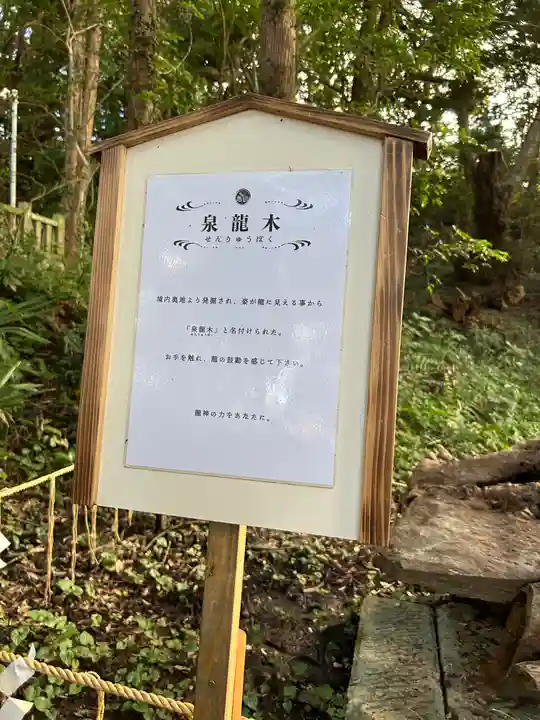 泉龍木
せんりゅうぼく
境内奥地より発掘され、姿が龍に見える事から
「泉龍木」と名付けられた。
お手を触れ、龍の鼓動を感じて下さい。
龍神の力をあなたに。